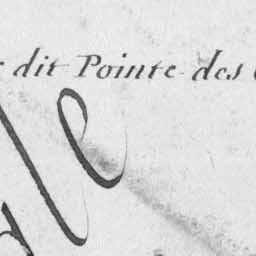 dit Pointe des
le